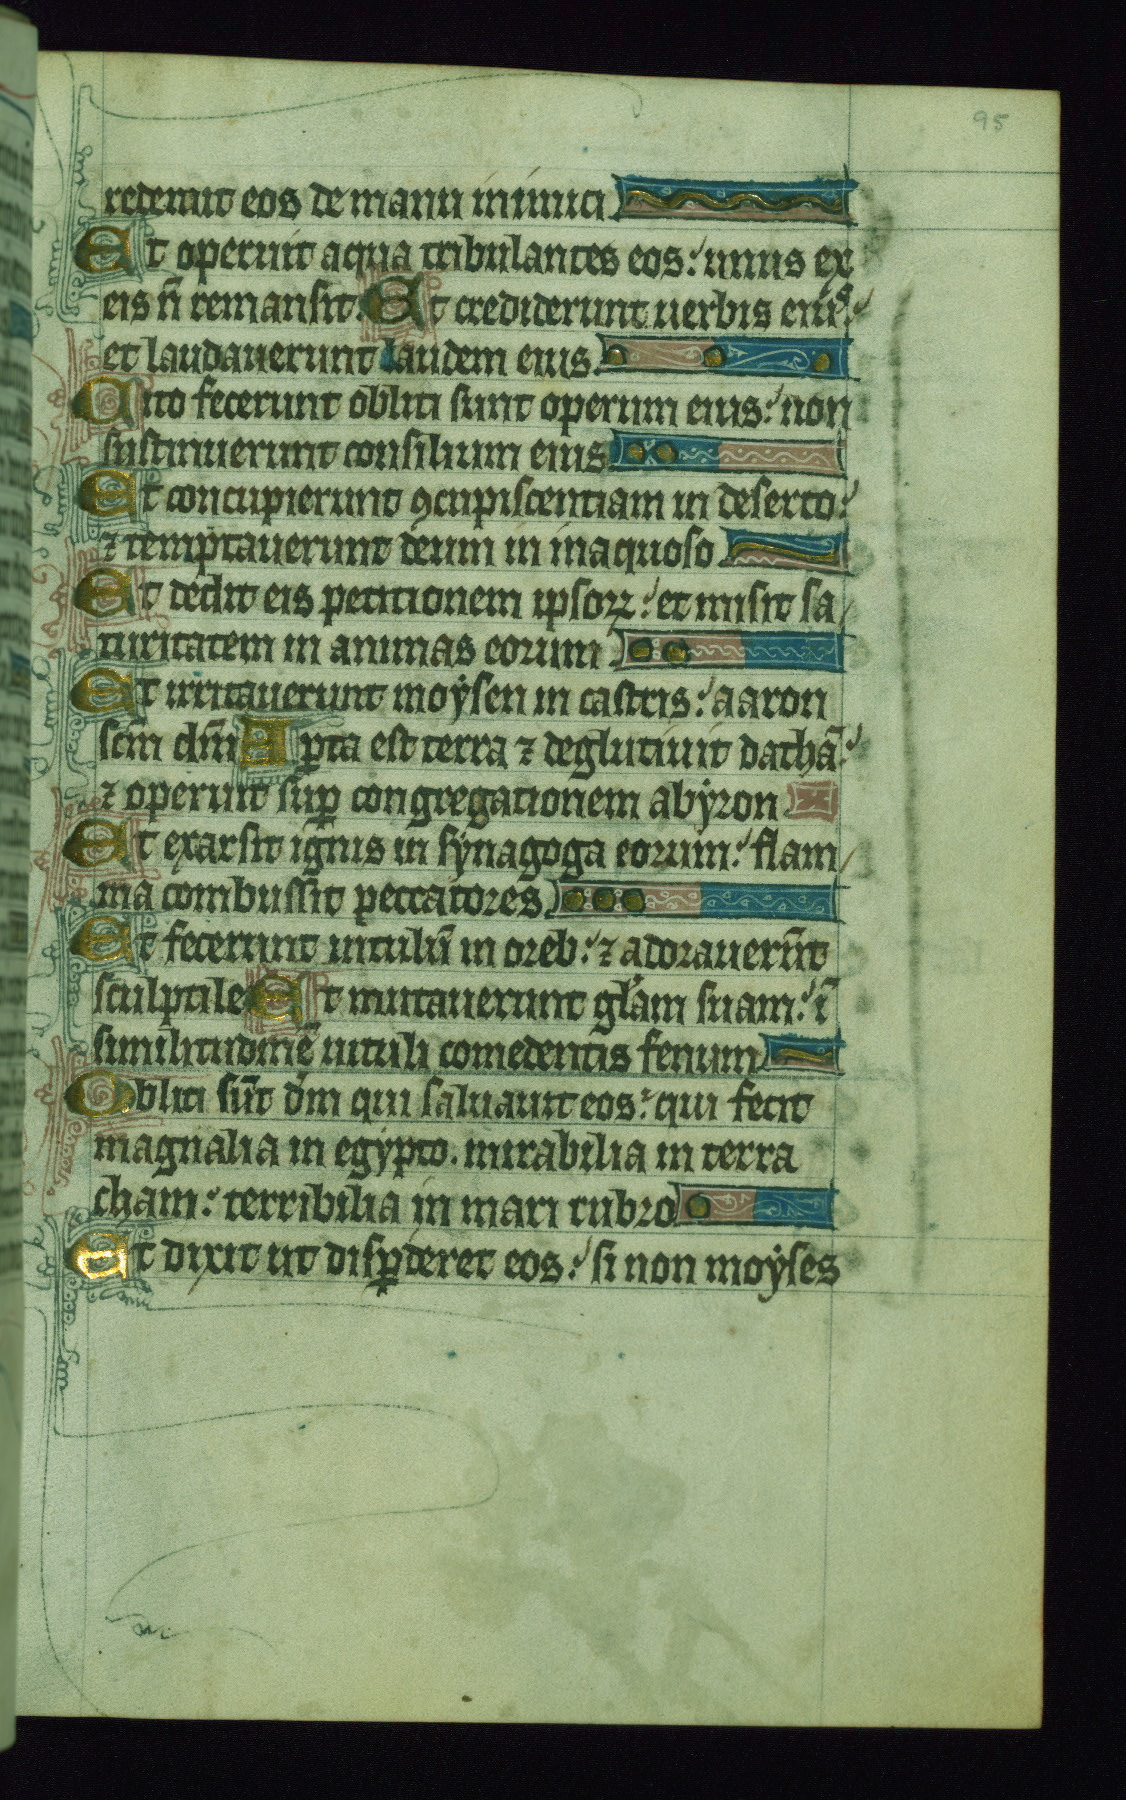 95
redemit eos de manu inimici
Et operuit aqua tribulantes eos: unus ex
eis n̄ remansit. Et crediderunt uerbis eiꝰ:
et laudauerunt laudem eius.
Cito fecerunt obliti sunt operum eius: non
sustinuerunt consilium eius
Et concupierunt ꝯcupiscentiam in deserto:
⁊ temptauerunt deum in inaquoso
Et dedit eis petitionem ipsoꝝ: et misit sa
turitatem in animas eorum.
Et irritauerunt moẏsen in castris: aaron
scm̄ dm̄ Apta est terra ⁊ deglutiuit dathā:
⁊ operuit suꝑ congregationem abẏron
Et exarsit ignis in sẏnagoga eorum: flam
ma combussit peccatores.
Et fecerunt uitulū in oreb: ⁊ adorauerūt
sculptile Et mutauerunt gl̄am suam: ī
similitudinē uituli comedentis fenum
Obliti sūt dm̄ qui saluauit eos: qui fecit
magnalia in egẏpto. mirabilia in terra
cham: terribilia in mari rubro
Et dixit ut disꝑderet eos: si non moẏses